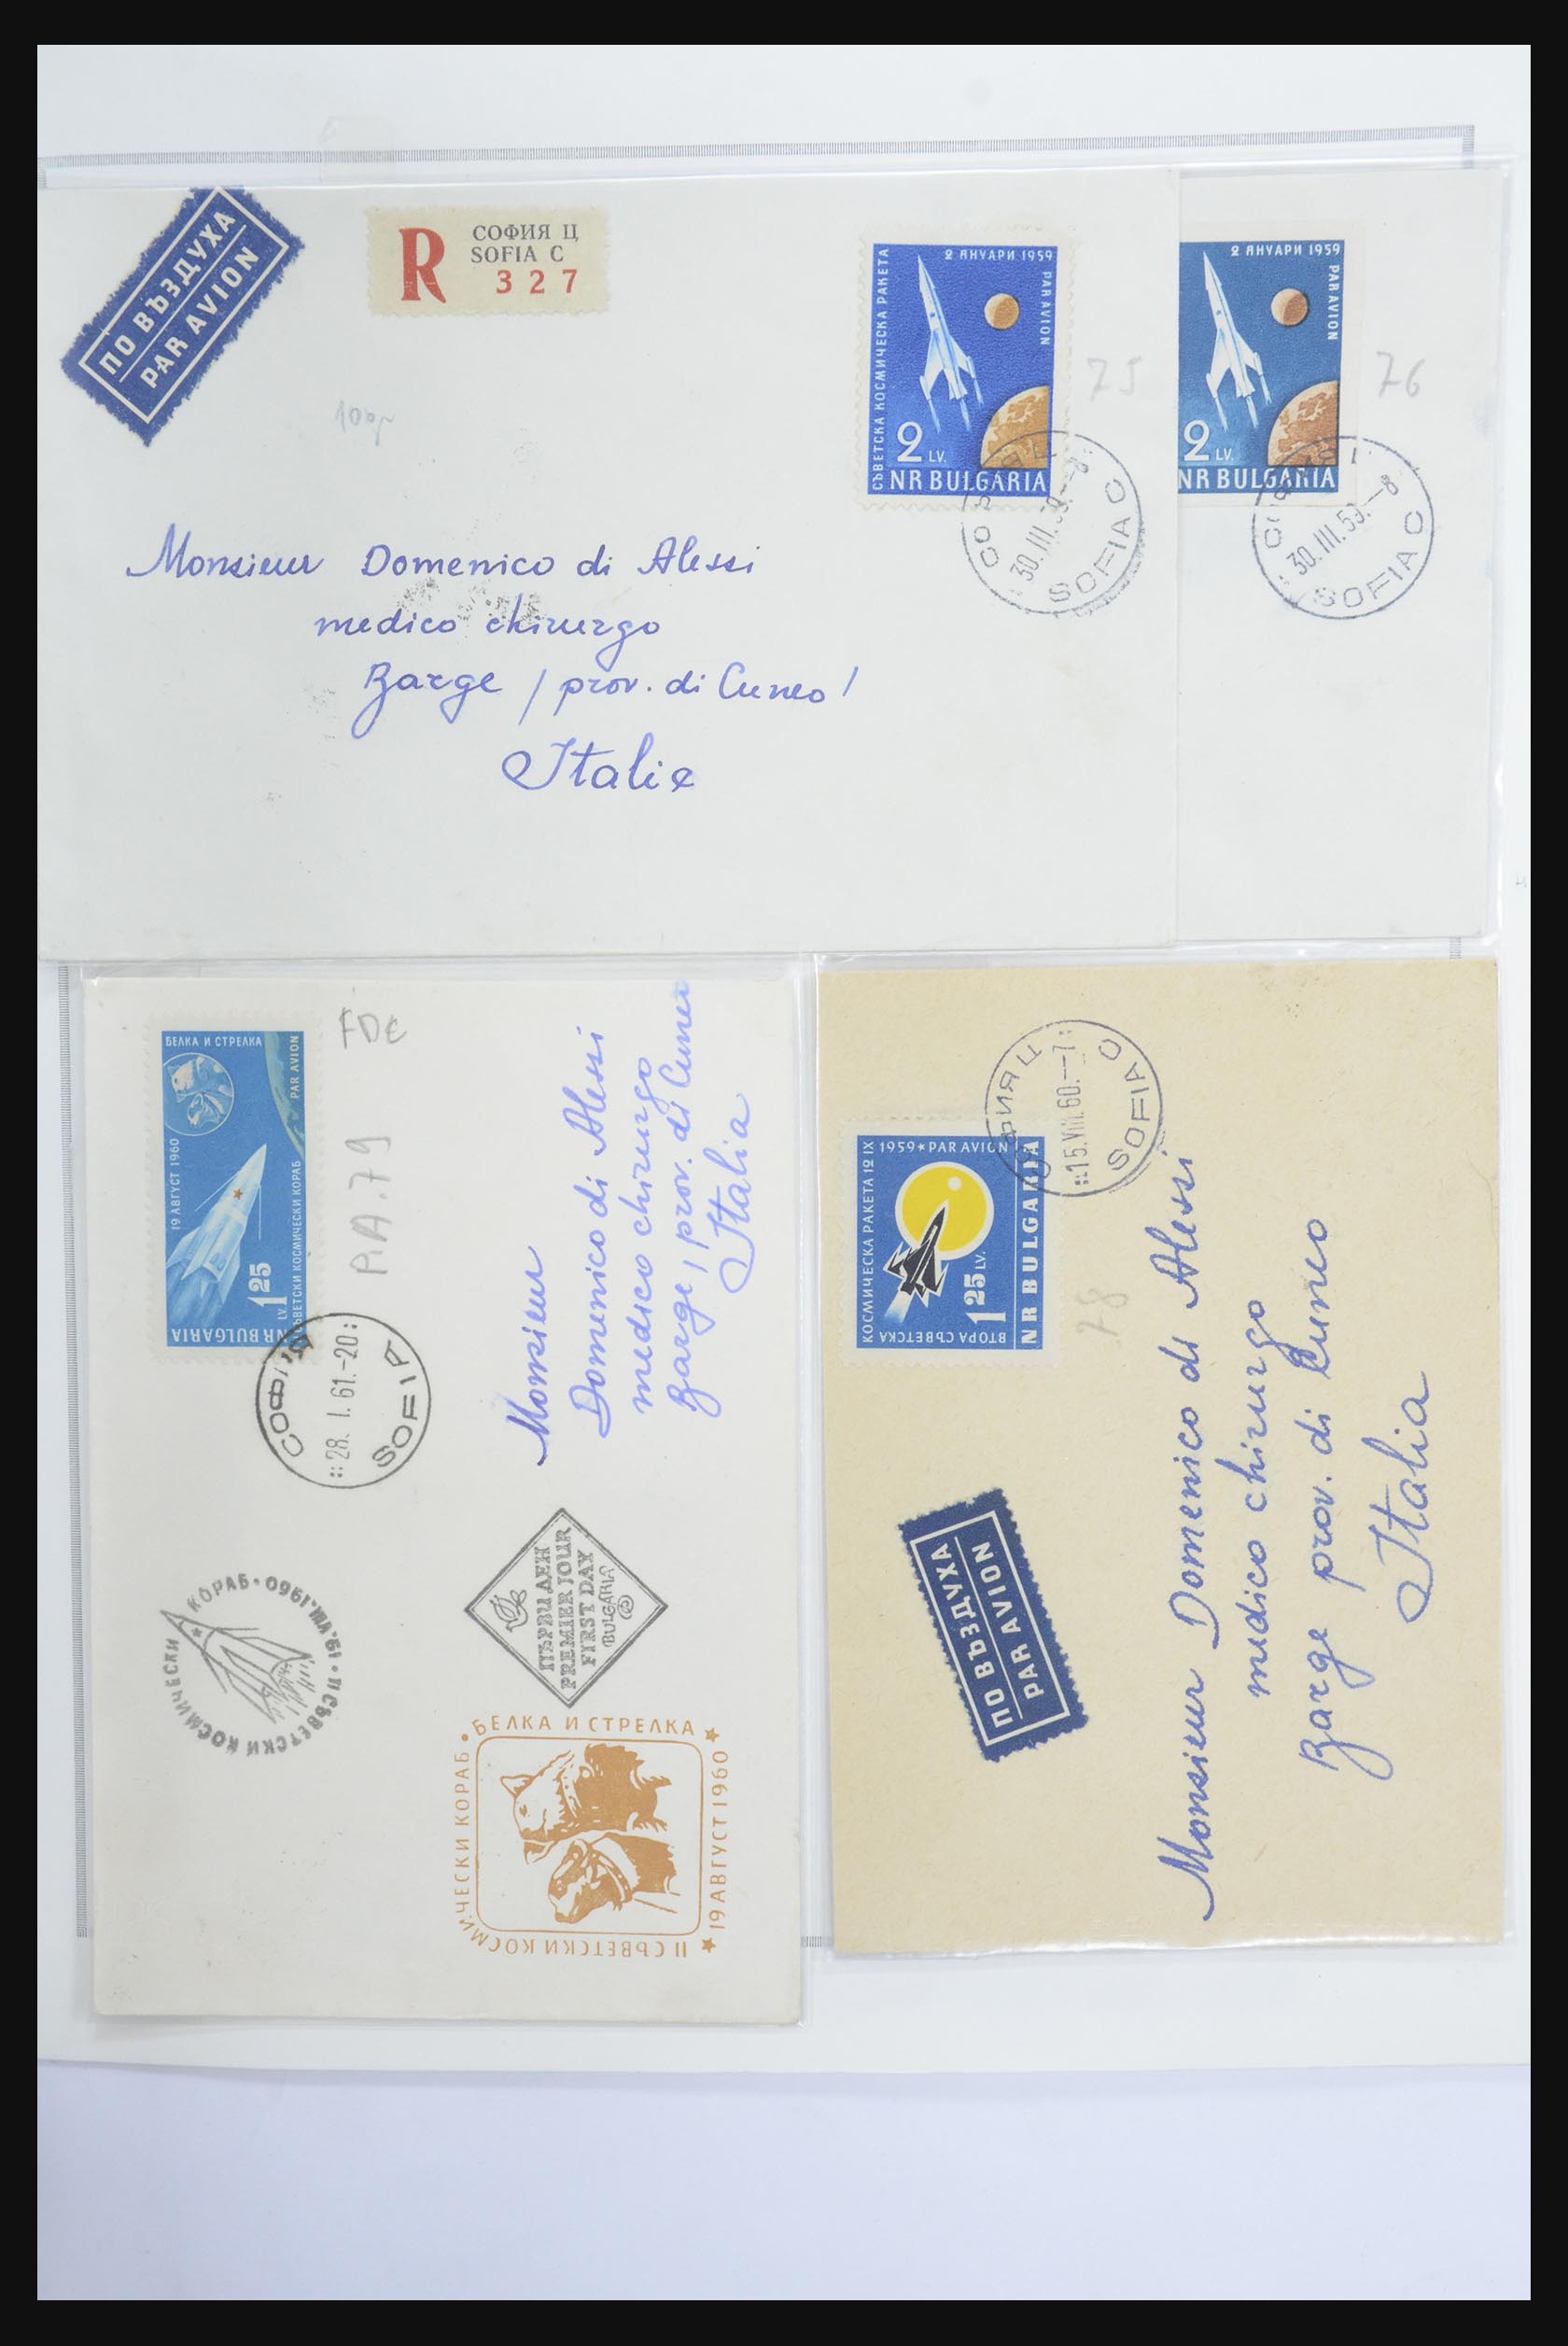 ПО ВЪЗДУХА
PAR AVION
R
СОФИЯ Ц
SOFIA C
327
СЪВЕТСКА КОСМИЧЕСКА РАКЕТА
2 ЯНУАРИ 1959
PAR AVION
2 LV.
NR BULGARIA
30.III.59.--8
SOFIA C
75
2 ЯНУАРИ 1959
PAR AVION
2 LV.
NR BULGARIA
30.III.59.--8
SOFIA C
76
Monsieur Domenico di Alessi
medico chirurgo
Barge / prov. di Cuneo /
Italie
БЕЛКА И СТРЕЛКА
PAR AVION
19 АВГУСТ 1960
СЪВЕТСКИ КОСМИЧЕСКИ КОРАБ
LV. 1 25
NR BULGARIA
FDC
P.A.79
СОФИЯ
28.I.61.-20
SOFIA
Monsieur
Domenico di Alessi
medico chirurgo
Barge, prov. di Cuneo
Italia
19.VIII.1960 · II СЪВЕТСКИ КОСМИЧЕСКИ КОРАБ ·
ПЪРВИ ДЕН
PREMIER JOUR
FIRST DAY
BULGARIA
БЕЛКА И СТРЕЛКА
★ 19 АВГУСТ 1960 ★
II СЪВЕТСКИ КОСМИЧЕСКИ КОРАБ •
ВТОРА СЪВЕТСКА
КОСМИЧЕСКА РАКЕТА 12 IX
1959 ★ PAR AVION
1 25 LV.
NR BULGARIA
СОФИЯ Ц
15.VIII.60.--7
SOFIA C
78
ПО ВЪЗДУХА
PAR AVION
Monsieur Domenico di Alessi
medico chirurgo
Barge prov. di Cuneo
Italia